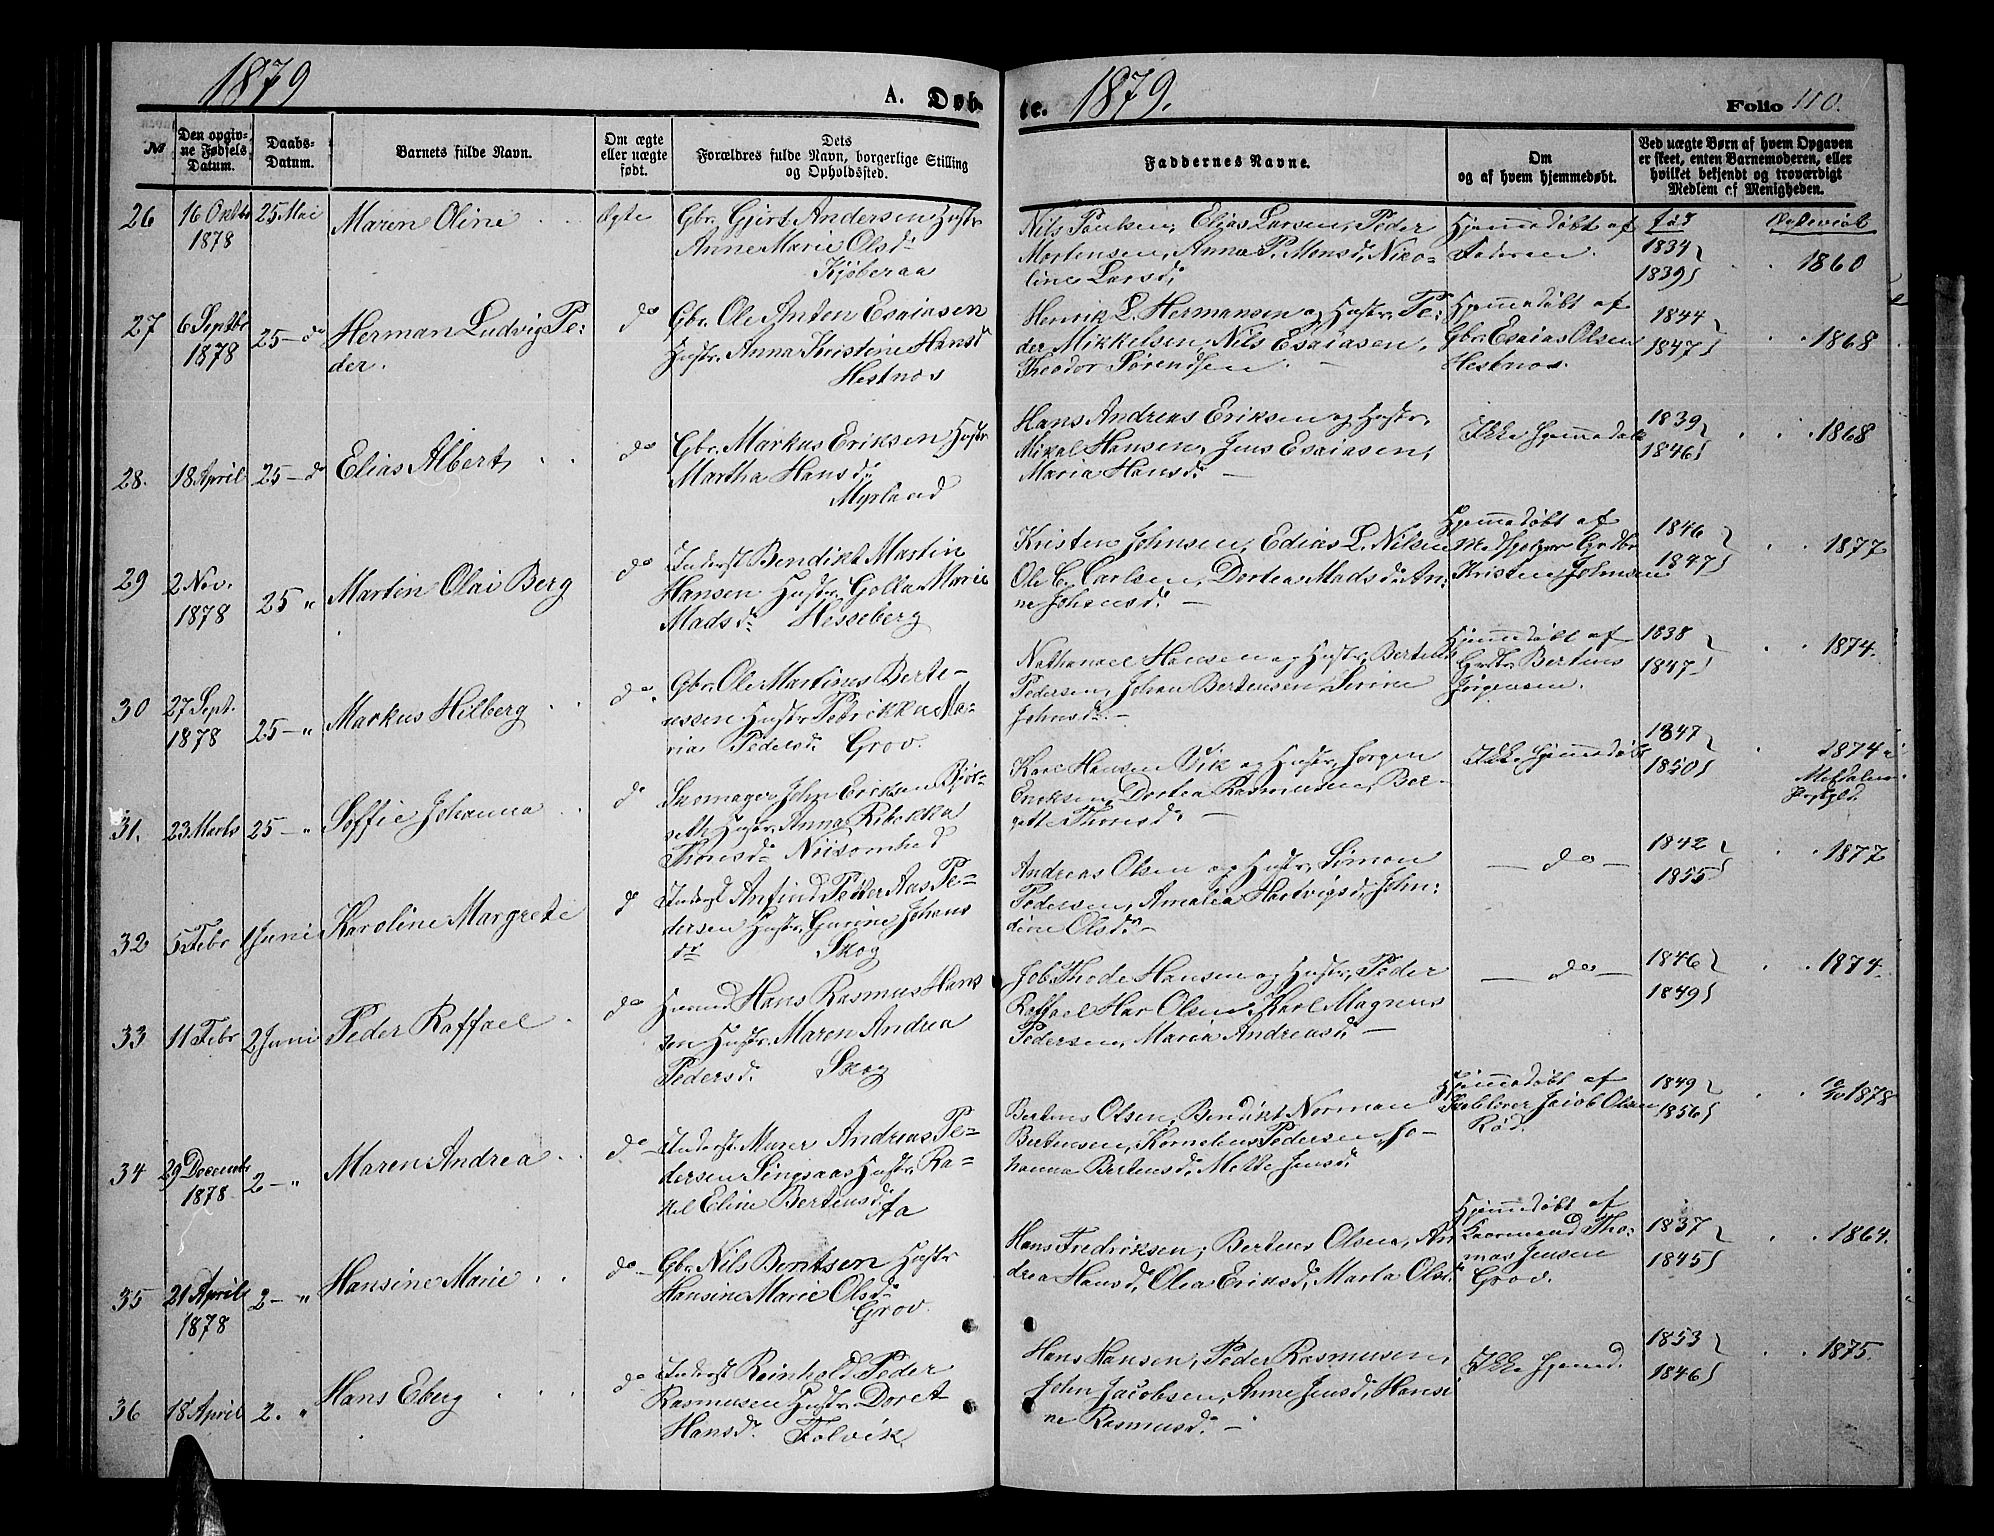 1879
A. Døb-
te. 1879.
Folio 110.
№
Den opgiv-
ne Fødsels
Datum.
Daabs-
Datum.
Barnets fulde Navn.
Om ægte
eller uægte
født.
Dets
Forældres fulde Navn, borgerlige Stilling
og Opholdssted.
Faddernes Navne.
Om
og af hvem hjemmedøbt.
Ved uægte Børn af hvem Opgaven
er skeet, enten Barnemoderen, eller
hvilket bekjendt og troværdigt
Medlem af Menigheden.
26
16 Oktbr
1878
25 Mai
Maren Oline
Ægte
Gbr. Gjert Andersen Hustr
Anne Marie Olsd.
Kjøberaa
Nils Paulsen, Elias Larsen, Peder
Mortensen, Anna P. Monsd, Niko-
line Larsd.
Hjemmedøbt af
Faderen.
fød
1834
1839
1860
27
6 Septbr
1878
25 – do
Herman Ludvig Pe-
der.
do
Gbr. Ole Anton Esaiasen
Hustr. Anna Kristine Hansd
Hestnes
Henrik L. Hermansen og Hustr. Pe-
der Mikkelsen, Nils Esaiasen,
Theodor Sørendsen. –
Hjemmedøbt af
Gbr. Esaias Olsen
Hestnes.
1844
1847
1868
28.
18 April
25 – do
Elias Albert
do
Gbr. Markus Eriksen Hustr
Martha Hansd.
Myrland
Hans Andreas Eriksen og Hustr.
Mikal Hansen, Jens Esaiasen,
Maria Hansd. –
Ikke hjemmedøbt
1839
1846
1868
29
2 Nov.
1878
25 "
Martin Olai Berg
do
Inderst Bendikt Martin
Hansen Hustr. Golla Marie
Madsd. Hesseberg
Kristen Johnsen, Edias L. Nilsen
Ole C. Carlsen, Dortea Madsd. An-
ne Johansd. –
Hjemmedøbt af
Kristen Johnsen
1846
1847
1877
30
27 Sept.
1878
25 – "
Markus Hilberg
do
Gbr. Ole Martinus Berte-
ussen Hustr. Petrikka Ma-
rias Pedersd. Grov.
Nathanael Hansen og Hustr. Berteus
Pedersen, Johan Berteusen,
Johnsd. –
Hjemmedøbt af
Berteus
Jørgensen.
1838
1847
1874.
31.
23 Marts
25 – "
Soffie Johanna
do
Skomager John Ericksen Bjør-
seth Hustr. Anna Ribekka
Thonsd. Niisomhed
Karl Hansen Vik og Hustr. Jørgen
Ericksen, Dortea Rasmusen, Ber-
gette Thonsd. –
Ikke hjemmedøbt
1847
1850
1874 i
32
5 Febr
1 Juni
Karoline Margrete
do
Inderst Anfind Peder Aas Pe-
dersen Hustr. Gurine Johans
dr Skog
Andreas Olsen og Hustr. Simon
Pedersen, Amalia Hartvigsd, John-
dine Olsd. –
– do –
1842
1855
1877
33
11 Febr
2 Juni
Peder Raffael
do
Hans Rasmus Hans
sen Hustr. Maren Andrea
Pedersd. Skog
Job Thode Hansen og Hustr. Peder
Raffael Har Olsen, Karl Magnus
Pedersen, Maria Andreasd. –
– do –
1846
1849
1874.
34
29 Decembr
1878
2 – "
Maren Andrea
do
Inderst Murer Andreas Pe-
dersen Singsaas Hustr. Ra-
kel Eline Berteusd.
Aa
Berteus Olsen, Bendikt Norman
Berteusen, Kornelius Pedersen, Jo-
hanna Berteusd. Mette Jensd.
Hjemmedøbt af
Skolelærer Jacob Olsen
Rød.
1849
1856
1878
35
21 April
1878
2 – "
Hansine Marie
do
Gbr. Nils Bentsen Hustr
Hansine Marie Olsd.
Grov.
Hans Fredriksen, Berteus Olsen, An
drea Hansd. Olea Eriksd. Marta Olsd.
Hjemmedøbt af
Kaarmand Tho-
mas Jensen
Grov.
1837
1845
1864.
36
18 April
2. "
Hans Eberg
do
Inderst Reinhold Peder
Rasmusen Hustr. Doret
Hansd. Folvik.
Hans Hansen, Peder Rasmusen,
John Jacobsen, Anne Jensd, Hansi
ne Rasmusd. –
Ikke hjemmed.
1853
1846
1875.